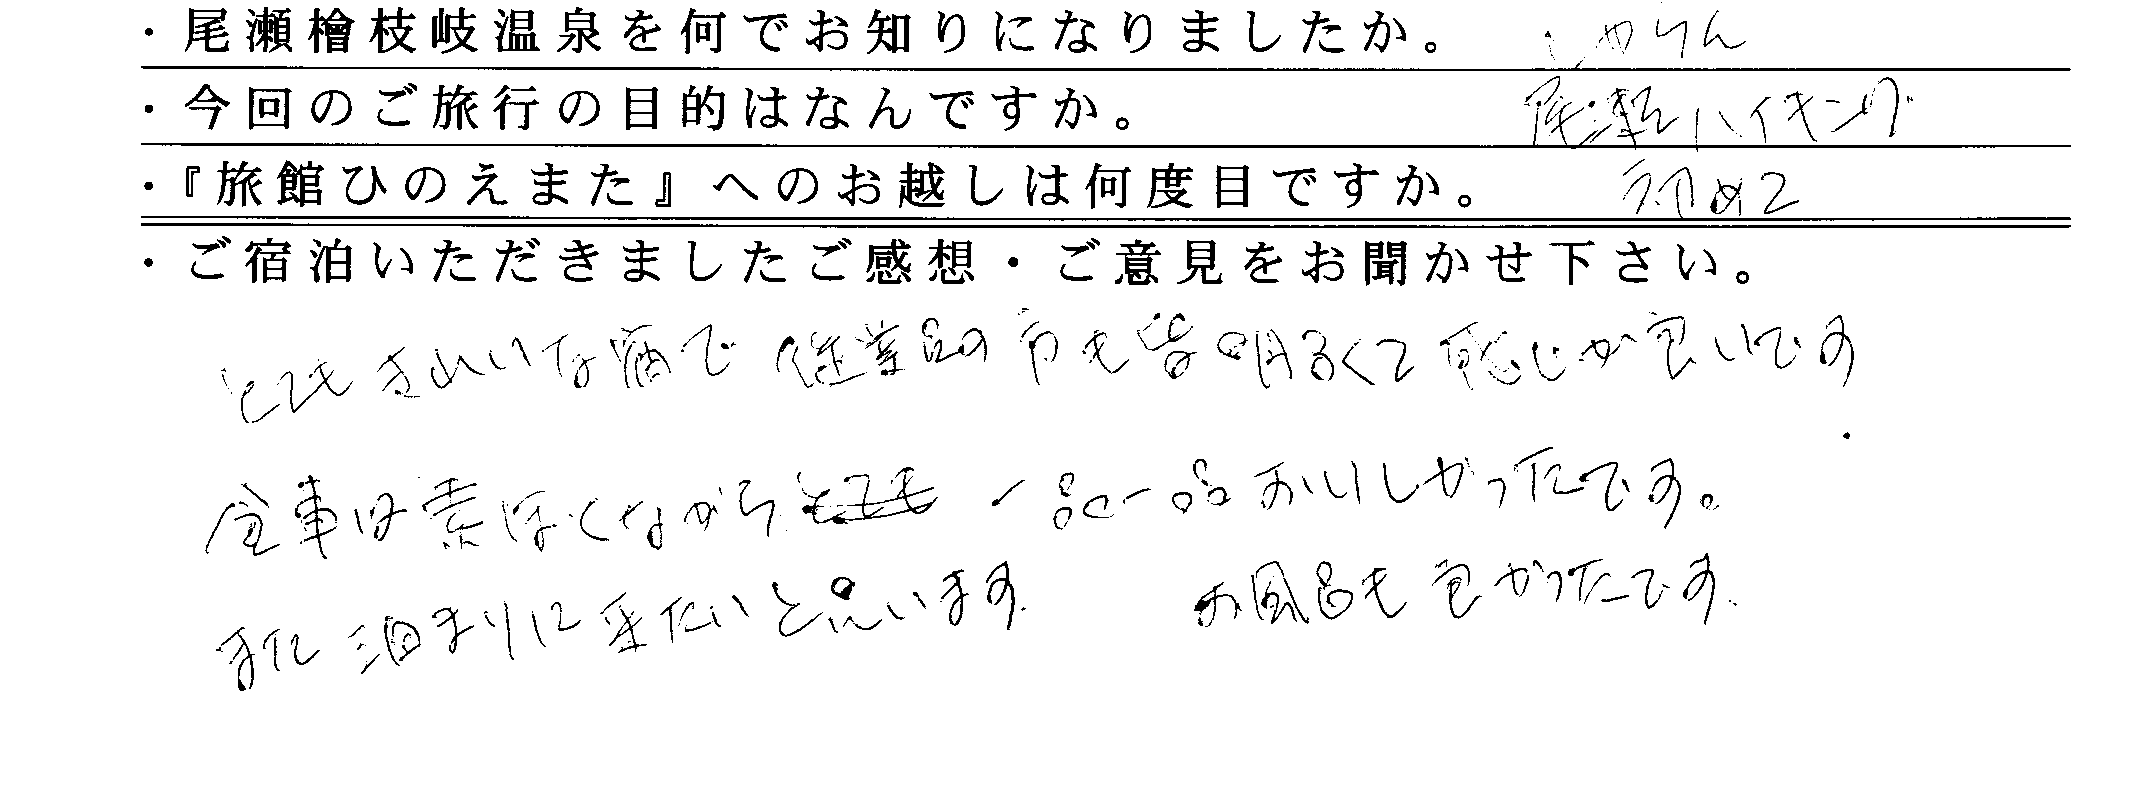 ・尾瀬檜枝岐温泉を何でお知りになりましたか。 じゃらん
・今回のご旅行の目的はなんですか。 尾瀬ハイキング
・『旅館ひのえまた』へのお越しは何度目ですか。 初めて
・ご宿泊いただきましたご感想・ご意見をお聞かせ下さい。
とてもきれいな宿で 従業員の方も皆明るくて感じが良いです
食事は素ぼくながら とても 一品一品おいしかったです。
また泊まりに来たいと思います. お風呂も良かったです.